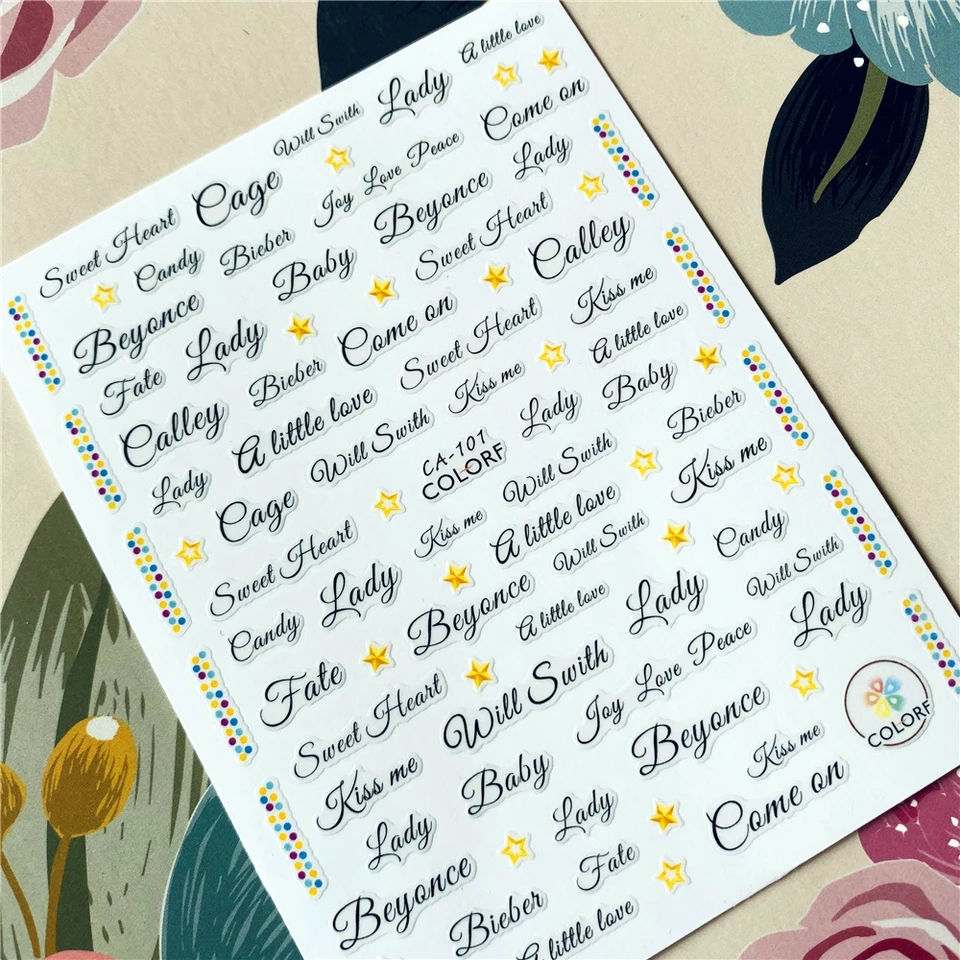 A little love
Will Swith
Lady
Come on
Cage
Joy Love Peace
Lady
Sweet Heart
Candy
Bieber
Beyonce
Baby
Sweet Heart
Calley
Beyonce
Lady
Come on
Kiss me
Fate
Bieber
Sweet Heart
A little love
Calley
A little love
Kiss me
Baby
Will Swith
Lady
Bieber
Lady
Cage
CA-101
COLORF
Will Swith
Kiss me
Sweet Heart
Kiss me
A little love
Candy
Lady
Will Swith
Candy
Beyonce
A little love
Lady
Will Swith
Fate
Lady
Sweet Heart
Will Swith
Joy Love Peace
Beyonce
Kiss me
Baby
Kiss me
COLORF
Lady
Lady
Come on
Beyonce
Fate
Bieber
A little love